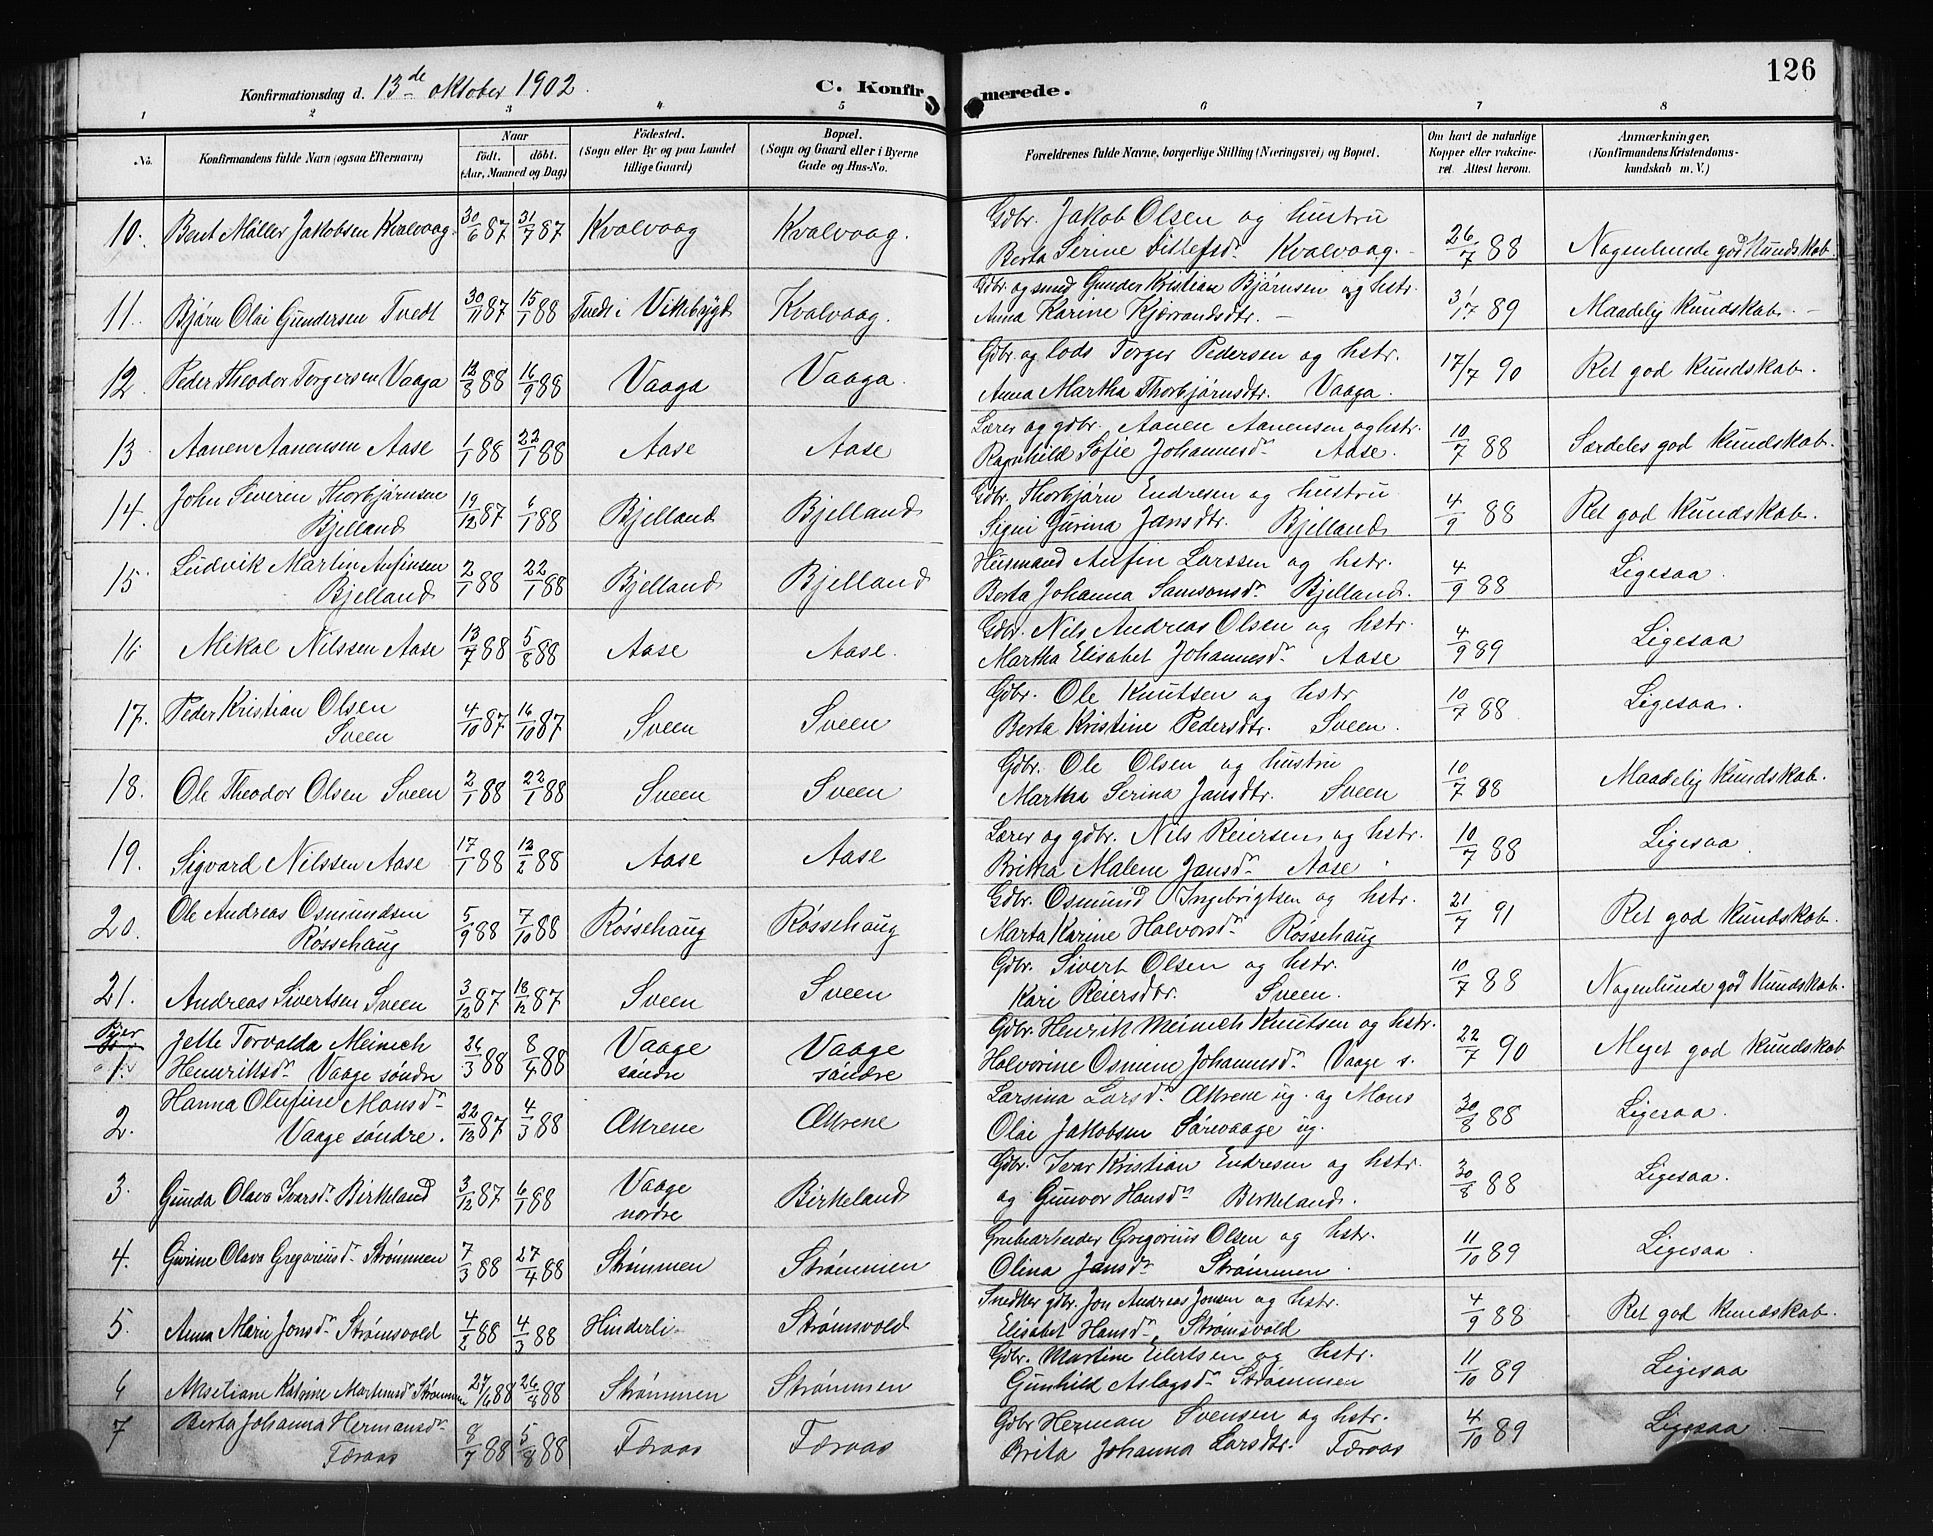 126
Konfirmationsdag d. 13de oktober 1902. C. Konfirmerede.
1 2 3 4 5 6 7 8
No. Konfirmandens fulde Navn (ogsaa Efternavn) Naar født. døbt. (Aar, Maaned og Dag) Fødested. (Sogn eller By og paa Landet tillige Gaard) Bopæl. (Sogn og Gaard eller i Byerne Gade og Hus-No. Forældrenes fulde Navne, borgerlige Stilling (Næringsvei) og Bopæl. Om havt de naturlige Kopper eller vakcineret. Attest herom. Anmærkninger. (Konfirmandens Kristendomskundskab m. V.)
10. Berit Møller Jakobsen Kvalvaag. 30/6 87 31/7 87 Kvalvaag Kvalvaag. Gdbr. Jakob Olsen og hustru
Berta Serine Ditlefsdr Kvalvaag. 26/7 88 Nogenlunde god Kundskab.
11. Bjørn Olai Gundersen Tvedt 30/11 87 15/1 88 Tvedt i Vikebygd Kvalvaag. Gdbr. og smed Gunder Kristian Bjørnsen og hstr.
Anna Karine Kjærrandsdtr. — 31/7 89 Maadelig Kundskab. —
12. Peder Theodor Torgersen Vaaga 12/8 88 16/9 88 Vaaga Vaaga. Gdbr. og lods Torger Pedersen og hstr.
Anna Martha Thorbjørnsdtr. Vaaga. 17/7 90 Ret god Kundskab.
13. Aanen Aanensen Aase 1/1 88 22/1 88 Aase Aase Lærer og gdbr. Aanen Aanensen og hstr.
Ragnhild Sofie Johannesdr Aase. 10/7 88 Særdeles god Kundskab.
14. John Severin Thorbjørnsen
Bjelland 19/12 87 6/1 88 Bjelland Bjelland Gdbr. Thorbjørn Endresen og hustru
Signi Gurina Jansdtr. Bjelland 4/9 88 Ret god Kundskab.
15. Ludvik Martin Anfinsen
Bjelland 2/1 88 22/1 88 Bjelland Bjelland Husmand Anfin Larssen og hstr.
Berta Johanna Samsonsdr Bjelland. 4/9 88 Ligesaa.
16. Mikal Nilssen Aase 13/7 88 5/8 88 Aase Aase. Gdbr. Nils Andreas Olsen og hstr.
Martha Elisabet Johannesdr Aase 4/9 89 Ligesaa
17. Peder Kristian Olsen
Sveen 4/10 87 16/10 87 Sveen Sveen Gdbr. Ole Knutsen og hstr
Berta Kristine Pedersdtr. Sveen. 10/7 88 Ligesaa.
18. Ole Theodor Olsen Sveen 2/1 88 22/1 88 Sveen Sveen Gdbr. Ole Olsen og hustru
Martha Serina Jansdtr. Sveen 10/7 88 Maadelig Kundskab.
19. Sigvard Nilssen Aase 17/1 88 12/2 88 Aase Aase Lærer og gdbr. Nils Reiersen og hstr.
Britha Malene Jansdr Aase 10/7 88 Ligesaa.
20. Ole Andreas Osmundsen
Røssehaug 5/9 88 7/10 88 Røssehaug Røssehaug Gdbr. Osmund Ingebrigtsen og hstr.
Marta Karine Halvorsdr Røssehaug 21/7 91 Ret god Kundskab.
21. Andreas Sivertsen Sveen 3/12 87 18/12 87 Sveen Sveen Gdbr. Sivert Olsen og hstr.
Kari Reiersdtr. Sveen. 10/7 88 Nogenlunde god Kundskab.
Piger
1. Jelle Torvalda Meinich
Henriksdr Vaage søndre 26/3 88 8/4 88 Vaage søndre Vaage søndre Gdbr. Henrik Meinich Knutsen og hstr.
Halvorine Osmine Johannesdr Vaage s. 22/7 90 Meget god Kundskab
2. Hanna Olufine Monsdr
Vaage søndre. 22/12 87 4/3 88 Ækrene Ækrene Larsina Larsdr Ækrene ug. og Mons
Olai Jakobsen Sørvaage ug. 30/8 88 Ligesaa.
3. Gunda Olava Ivarsdr Birkeland 3/12 87 6/1 88 Vaage nordre Birkeland Gdbr. Ivar Kristian Endresen og hstr.
og Gunvor Hansdr Birkeland. 30/8 88 Ligesaa.
4. Gurine Olava Gregoriusdr Strømmen 7/3 88 27/4 88 Strømmen Strømmen Grubearbeider Gregorius Olsen og hstr.
Olina Jansdr Strømmen. 11/10 89 Ligesaa.
5. Anna Marie Jonsdr Strømsvold 4/2 88 4/3 88 Hinderli Strømsvold Snedker gdbr. Jon Andreas Jonsen og hstr.
Elisabet Hansdr, Strømsvold 4/9 88 Ret god Kundskab.
6 Akseliane Katrine Martinusdr Strømmen 24/6 88 26/8 88 Strømmen Strømmen Gdbr. Martine Eilertsen og hstr.
Gunhild Aslagsdr Strømmen 11/10 89 Ligesaa
7 Berta Johanna Hermansdr
Færaas 8/7 88 5/8 88 Færaas Færaas Gdbr Herman Svensen og hstr.
Brita Johanna Larsdtr. Færaas 4/10 89 Ligesaa. —